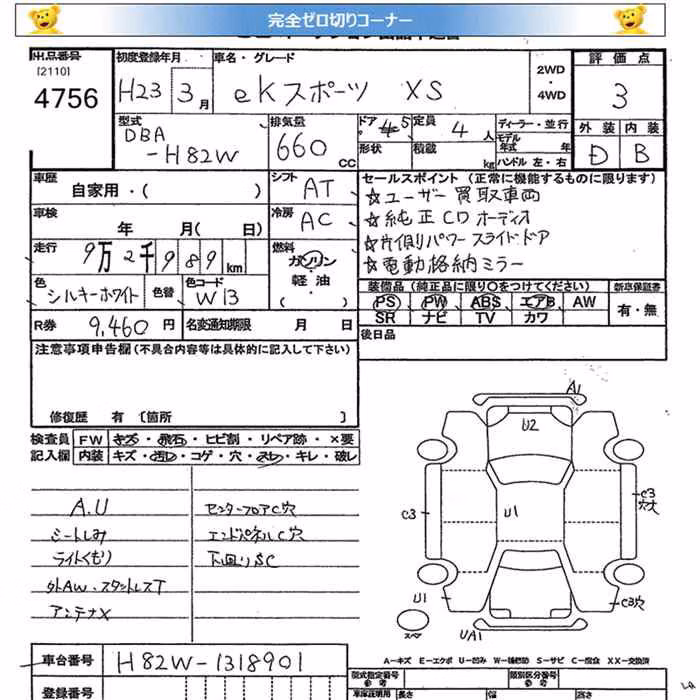 完全ゼロ切りコーナー
出品番号
[2110]
4756
初度登録年月
H23 3月
車名・グレード
ekスポーツ XS
2WD
・
4WD
評価点
3
外装 内装
D B
型式
DBA
-H82W
排気量
660 cc
ドア 5
定員 4人
形状
積載 kg
ディーラー・並行
モデル
年式 年
ハンドル 左・右
車歴
自家用・( )
シフト
AT
セールスポイント (正常に機能するものに限ります)
☆ユーザー買取車両
☆純正CDオーディオ
☆片側パワースライドドア
☆電動格納ミラー
車検
年 月( 日)
冷房
AC
走行
9万2千989km
燃料
ガソリン
軽油
( )
色
シルキーホワイト
色替
色コード
W13
装備品(純正品に限り○をつけてください)
PS PW ABS エアB AW
SR ナビ TV カワ
新車保証書
有・無
R券 9,460円
名変通知期限 月 日
後日品
注意事項申告欄(不具合内容等は具体的に記入して下さい)
修復歴 有 [箇所 ]
検査員
記入欄
FW キズ・飛石・ヒビ割・リペア跡・×要
内装 キズ・汚レ・コゲ・穴・スレ・キレ・破レ
A.U
シートしみ
ライトくもり
外AW・スタットレスT
アンテナX
センターフロアC穴
エンドパネルC穴
下回りSC
A1
U2
C3
U1
C3
穴大
U1
C3穴
スペア
UA1
A-キズ E-エクボ U-凹み W-補修跡 S-サビ C-腐食 XX-交換済
車台番号
H82W-1318901
登録番号
型式指定番号
参考
類別区分番号
参考
車庫証明用
長さ
幅
高さ